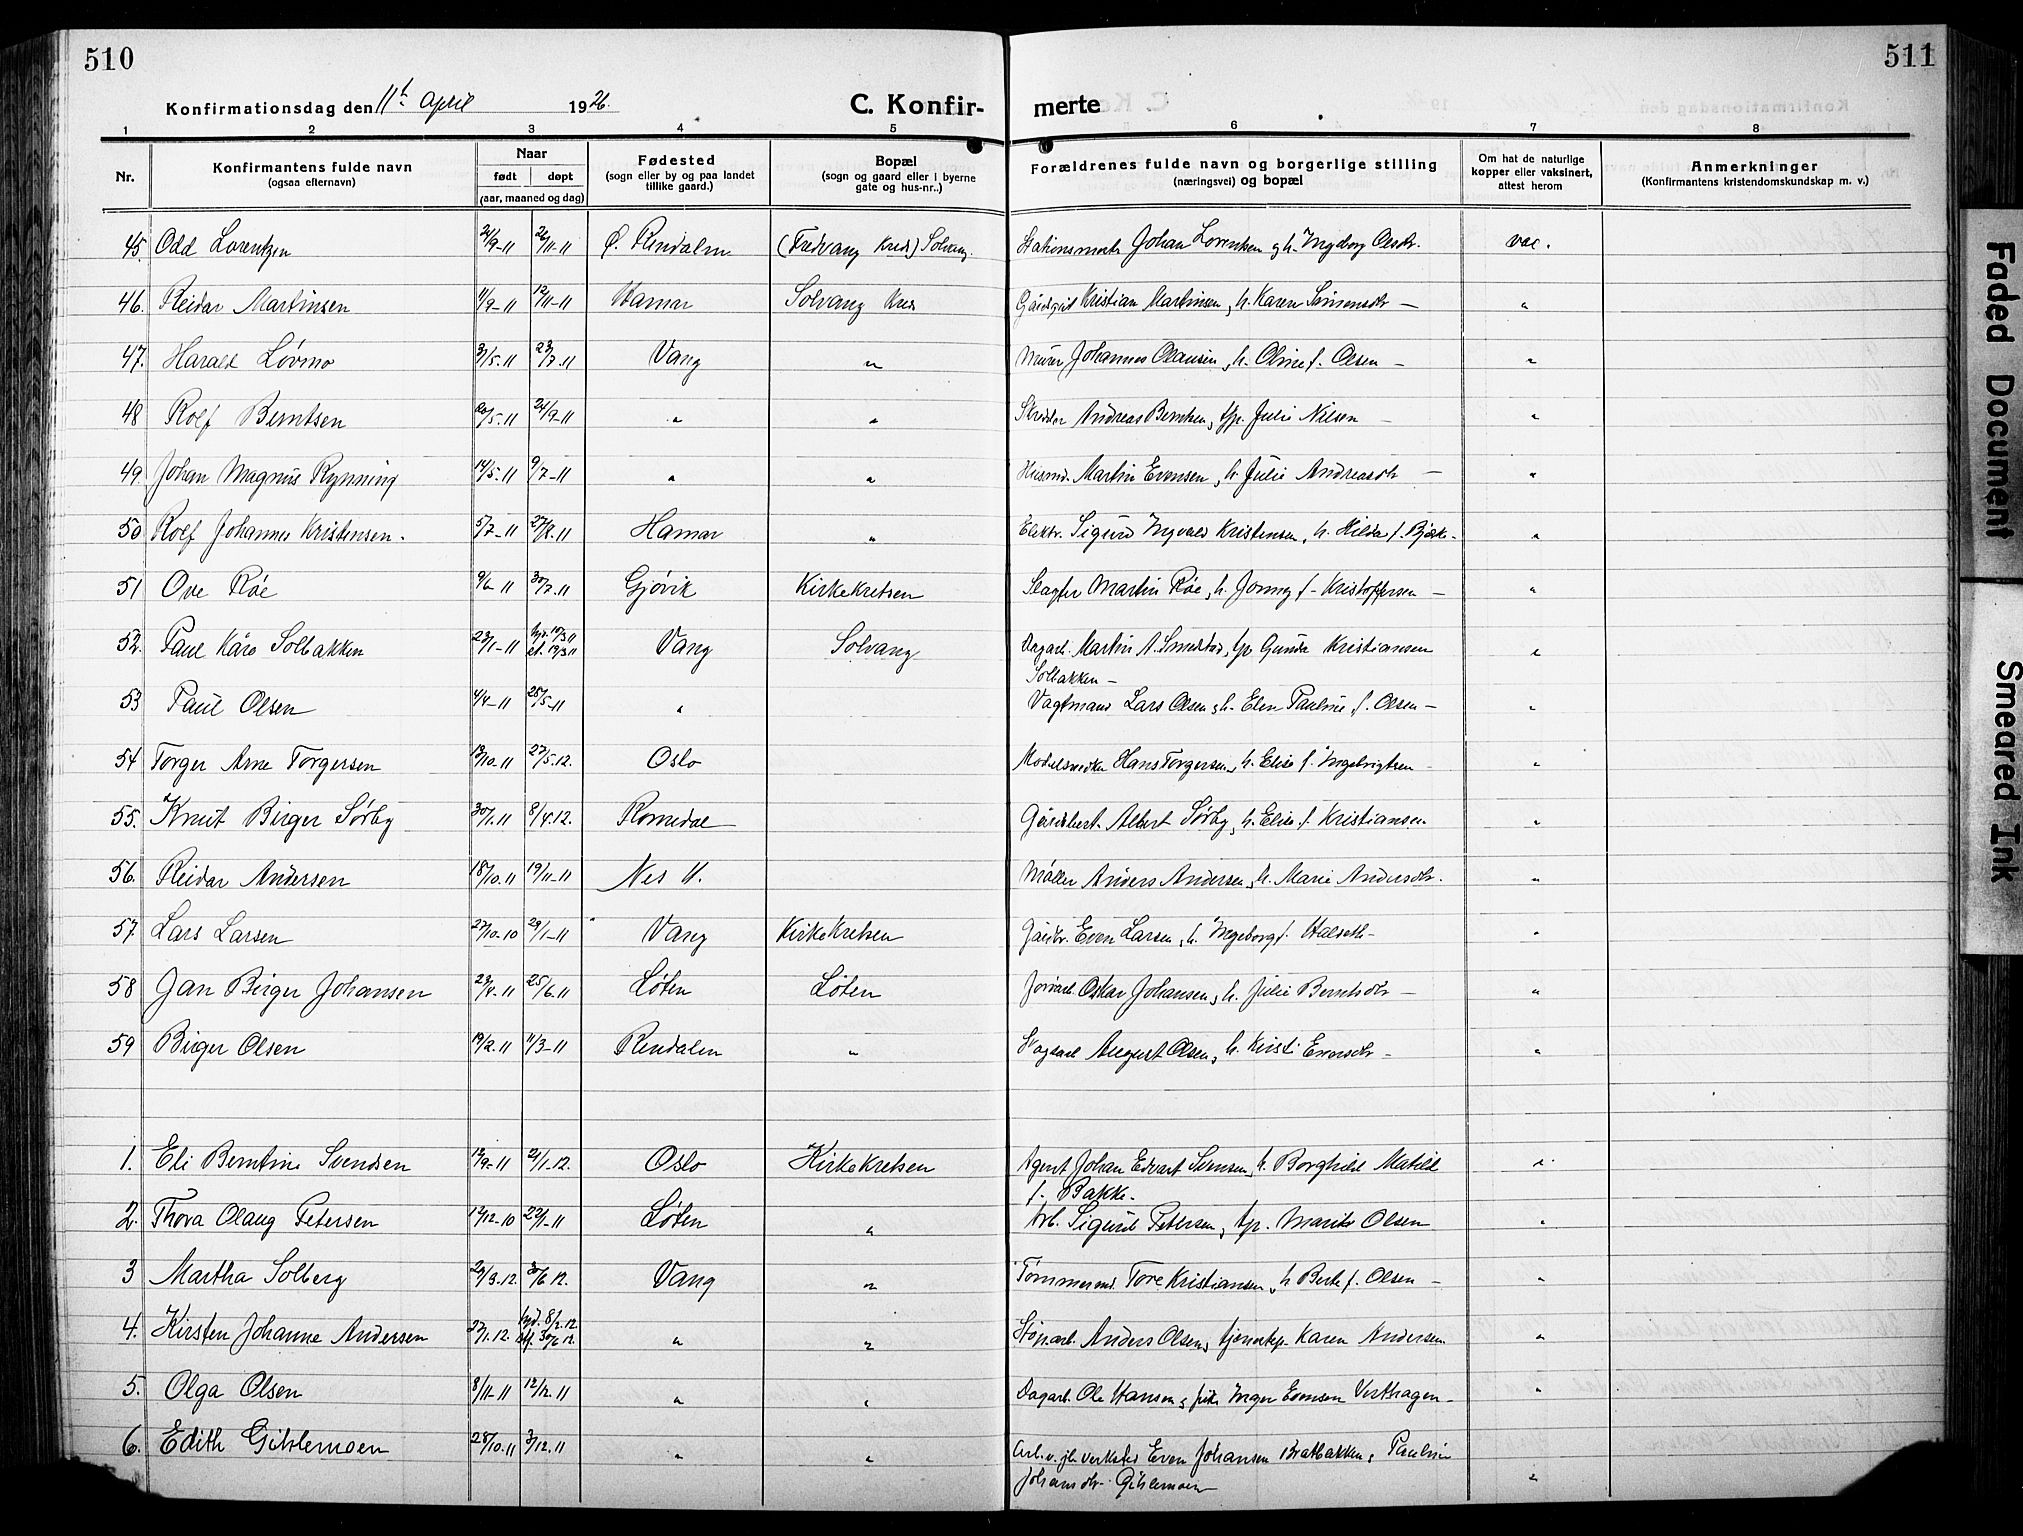 510
511
Konfirmationsdag den 11te April 1926.
C. Konfir-
merte
1 2 3 4 5 6 7 8
Nr. Konfirmantens fulde navn (ogsaa efternavn) Naar født døpt (aar, maaned og dag) Fødested (sogn eller by og paa landet tillike gaard.) Bopæl (sogn og gaard eller i byerne gate og hus-nr..) Forældrenes fulde navn og borgerlige stilling (næringsvei) og bopæl Om hat de naturlige kopper eller vaksinert, attest herom Anmerkninger (Konfirmantens kristendomskundskap m. v.)
45. Odd Lorentzen 24/9-11 26/11-11 Ø. Rendalen (Fredvang Kreds) Solvang. Stationsmester Johan Lorentzen og h. Ingeborg Olsdtr. vac.
46. Reidar Martinsen 11/9-11 12/11-11 Hamar Solvang Kres Kristian Martinsen, h. Karen Simensdtr — "
47. Harald Løvmo 3/5.11 23/7.11 Vang " Murer Johannes Olausen, h. Oline f. Olsen — "
48 Rolf Berntsen 20/5.11 24/9-11 " " Skredder Andreas Berntsen, tjp. Julie Nilsen — "
49. Johan Magnus Rynning 14/5.11 9/7-11 " " Husmd. Martin Evensen, h. Julie Andreasdtr — "
50. Rolf Johannes Kristensen. 5/7-11 27/8.11 Hamar " Elektr. Sigurd Ingvald Kristensen, h. Hilda f. Bjerke. "
51 Ove Røe 9/6-11 30/7.11 Gjøvik Kirkekretsen Slagter Martin Røe, h. Jenny f. Kristoffersen — "
52. Paul Kåre Solbakken 23/1-11 hjd. 10/3.11 st. 19/3.11 Vang Solvang Dagarb. Martin A. Smedstad, tp Gunda Kristiansen "
Solbakken —
53 Paul Olsen 4/4-11 25/5-11 " Vagtmand Lars Olsen, h. Elen Pauline f. Olsen — "
54 Torger Arne Torgersen 13/10-11 27/5.12. Oslo Modelsnedker Hans Torgersen, h. Elise f. Ingebrigtsen — "
55. Knut Birger Sørby 30/1.11 8/4.12. Romedal Albert Sørby, h. Elise f. Kristiansen "
56. Reidar Andersen 18/10.11 19/11-11 Nes H. Møller Anders Andersen, h. Marie Andersdtr. "
57. Lars Larsen 27/10-10 29/1-11 Vang Kirkekretsen Gårdbr. Even Larsen, h. Ingeborg f. Halseth — "
58 Jan Birger Johansen 23/4-11 25/6.11 Løten Løten Oskar Johansen, h. Julie Berntsdtr — "
59 Birger Olsen 19/2.11 11/3-11 Rendalen " Skogsarb August Olsen, h. Kirsti Evensdtr — "
1. Eli Berntine Svendsen 19/9-11 21/1-12. Oslo Kirkekretsen Agent Johan Edvart Svensen, h. Borghild Matild "
f. Bakke.
2. Thora Olaug Petersen 19/12-10 22/1-11 Løten " Arb. Sigurd Petersen, tp. Marit Olsen "
3 Martha Solberg 29/3.12. 30/6 12. Vang " Tømmermd. Tore Kristiansen, h Berte f. Olsen — "
4. Kirsten Johanne Andersen 27/1.12. hjd. 8/2.12. 30/6 12. " " Anders Olsen, tjenestep. Karen Andersen "
5. Olga Olsen 8/11-11 12/12.11 " " Dagarb. Ole Hansen, Inger Evensen — "
6. Edith Gihlemoen 28/10.11 3/12.11 " " Arb. v. jb. verksted Even Johansen Bratbakken, Pauline
Johansdtr. Gihlemoen "
Faded Document
Smeared Ink